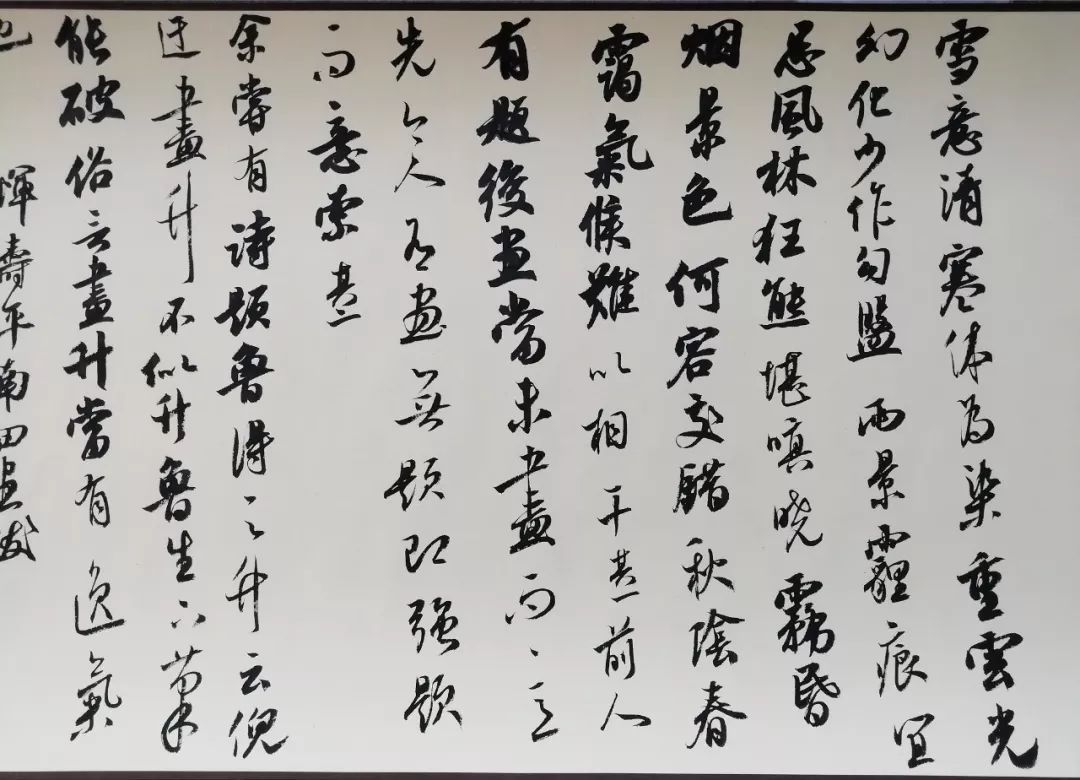 雪意清寒休為染重雲光
幻化少作勾盤雨景霾痕宜
忌風林狂態堪嗔曉霧昏
烟景色何容交錯秋陰春
靄氣候難以相干甚前人
有題後畫當未畫而意
先今人有畫無題即強題
而意索甚
余嘗有詩題魯得之竹云倪
迂畫竹不似竹魯生下筆
能破俗言畫竹當有逸氣
也 惲壽平南田畫跋